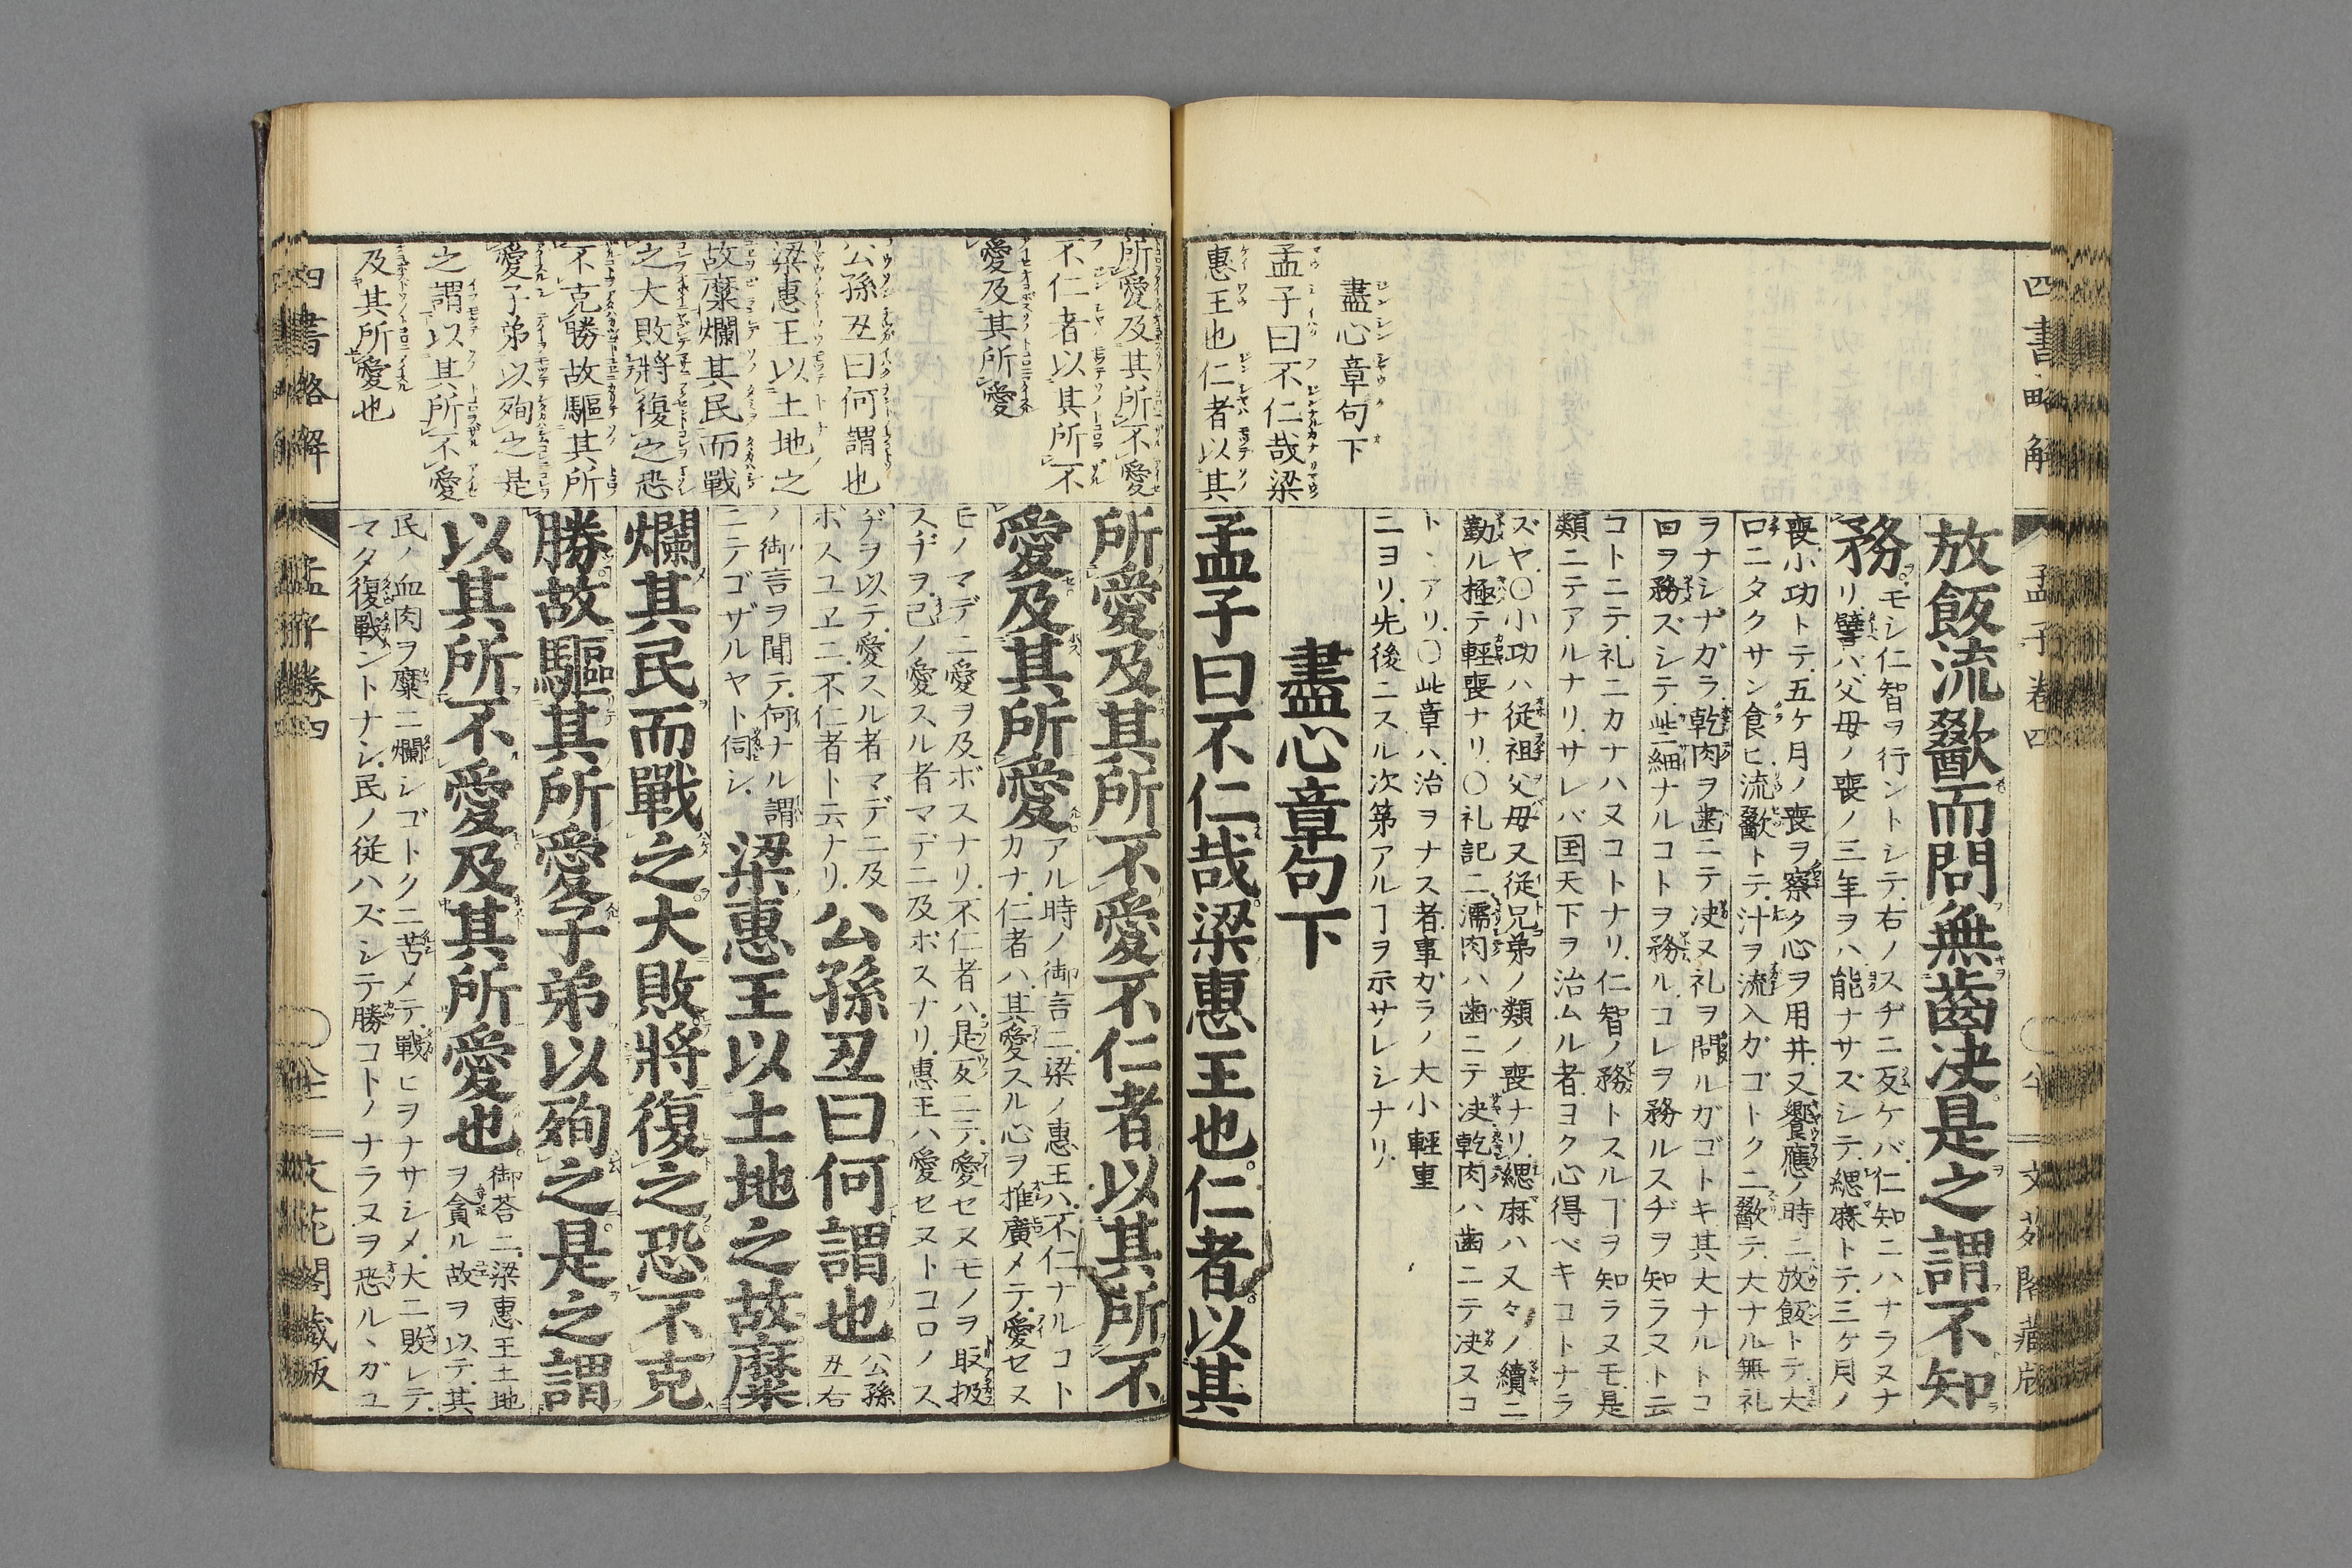 四書略解
孟子卷四
文苑閣藏版
盡心章句下
孟子曰不仁哉梁
惠王也仁者以其
放飯流歠而問無齒决是之謂不知
務
モシ仁智ヲ行ントシテ右ノスヂニ反ケバ仁知ニハナラヌナ
リ譬バ父母ノ喪ノ三年ヲハ能ナサズシテ緦麻トテ三ケ月ノ
喪小功トテ五ケ月ノ喪ヲ察ク心ヲ用井又饗應ノ時ニ放飯トテ大
口ニタクサン食ヒ流歠トテ汁ヲ流入ガゴトクニ歠テ大ナル無礼
ヲナシナガラ乾肉ヲ歯ニテ决ヌ礼ヲ問ルガゴトキ其大ナルトコ
回ヲ務ズシテ些細ナルコトヲ務ルコレヲ務ルスヂヲ知ラヌト云
コトニテ礼ニカナハヌコトナリ仁智ノ務トスルヿヲ知ラヌモ是
類ニテアルナリサレバ国天下ヲ治ムル者ヨク心得ベキコトナラ
ズヤ〇小功ハ従祖父母又従兄弟ノ類ノ喪ナリ緦麻ハ又々ノ續ニ
勤ル極テ輕喪ナリ〇礼記ニ濡肉ハ歯ニテ决乾肉ハ歯ニテ决ヌコ
トヽアリ〇此章ハ治ヲナス者事ガラノ大小輕重
ニヨリ先後ニスル次第アルヿヲ示サレシナリ
盡心章句下
孟子曰不仁哉梁惠王也仁者以其
所愛及其所不愛
不仁者以其所不
愛及其所愛
公孫丑曰何謂也
梁惠王以土地之
故糜爛其民而戰
之大敗將復之恐
不克勝故驅其所
愛子弟以殉之是
之謂以其所不愛
及其所愛也
所愛及其所不愛不仁者以其所不
愛及其所愛
アル時ノ御言ニ梁ノ惠王ハ不仁ナルコト
カナ仁者ハ其愛スル心ヲ推廣メテ愛セヌ
モノマデニ愛ヲ及ボスナリ不仁者ハ是反ニテ愛セヌモノヲ取扱
スヂヲ己ノ愛スル者マデニ及ボスナリ惠王ハ愛セヌトコロノス
ヂヲ以テ愛スル者マデニ及
ボスユヱニ不仁者ト云ナリ
公孫丑曰何謂也
公孫
丑右
ノ御言ヲ聞テ何ナル謂
ニテゴザルヤト伺シ
梁惠王以土地之故糜
爛其民而戰之大敗將復之恐不克
勝故驅其所愛子弟以殉之是之謂
以其所不愛及其所愛也
御荅ニ梁惠王土地
ヲ貪ル故ヲ以テ其
民ノ血肉ヲ糜ニ爛シゴトクニ苦メテ戰ヒヲナサシメ大ニ敗レテ
マタ復戰ントナシ民ノ從ハズシテ勝コトノナラヌヲ恐ルヽガユ
四書略解
孟子卷四
文苑閣藏版